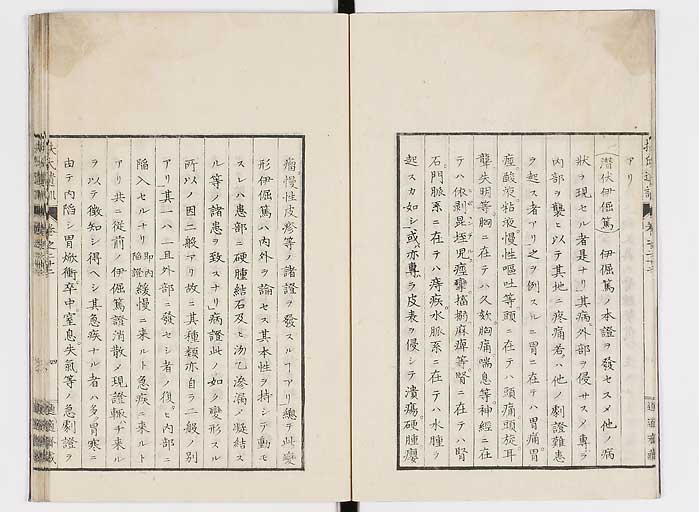 アリ
潜伏伊倔篤 伊倔篤ノ本證ヲ發セスメ他ノ病
状ヲ現セル者是ナリ其病外部ヲ侵サスメ專ラ
内部ヲ襲ヒ以テ其地ニ疼痛若ハ他ノ劇證難患
ヲ起ス者アリ之ヲ例スルニ胃ニ在テハ胃痛胃
痙酸液粘液慢性嘔吐等頭ニ在テハ頭痛頭旋耳
聾失明等胸ニ在テハ久欬胸痛喘息等神經ニ在
テハ依剥昆垤児痙攣搐搦麻痺等腎ニ在テハ腎
石門脈系ニ在テハ痔疾水脈系ニ在テハ水腫ヲ
起スカ如シ或亦專ラ皮表ヲ侵シテ潰瘍硬腫癭
瘤慢性皮疹等ノ諸證ヲ發スルヿアリ總テ此變
形伊倔篤ハ内外ヲ論セス其本性ヲ持シテ動モ
スレハ患部ニ硬腫結石及ヒ沕乙滲漏ノ凝結ス
ル等ノ諸患ヲ致スナリ病證此ノ如ク變形スル
所以ノ因二般アリ故ニ其種類亦自ラ二般ノ別
アリ其一ハ一旦外部ニ發セシ者ノ復ヒ内部ニ
陥入セルナリ 即内陥證 緩慢ニ来ルト急疾ニ来ルト
アリ共ニ從前ノ伊倔篤證消散メ現證輙チ来ル
ヲ以テ徴知シ得ヘシ其急疾ナル者ハ多ク胃寒ニ
由テ内陥シ胃焮衝卒中窒息失氣等ノ急劇證ヲ
扶氏遺訓 卷之二十二
四
適適齋藏